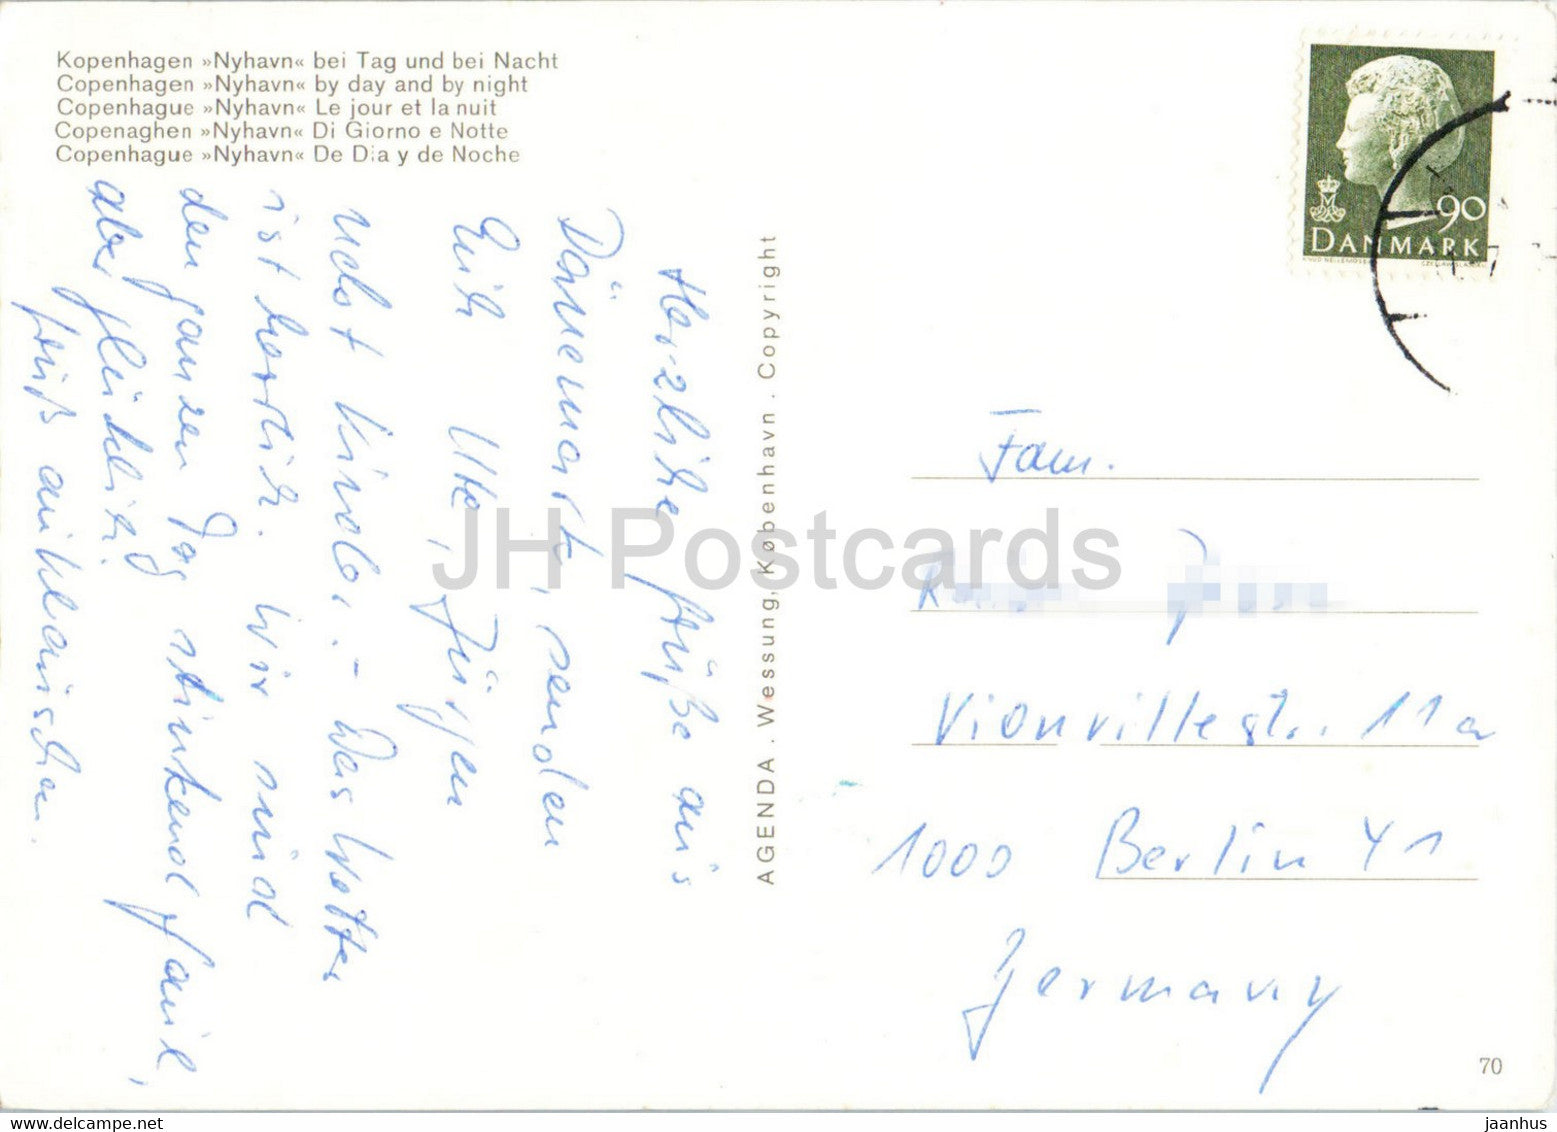 Kopenhagen »Nyhavn« bei Tag und bei Nacht
Copenhagen »Nyhavn« by day and by night
Copenhague »Nyhavn« Le jour et la nuit
Copenaghen »Nyhavn« Di Giorno e Notte
Copenhague »Nyhavn« De Dia y de Noche
Herzliche Grüße aus
Dänemark, senden
Euch Ute, Jürgen
nebst Kinder. - Das Wetter
ist herrlich. Wir sind
den ganzen Tag stinkend faul,
aber glücklich.
AGENDA . Wessung, København . Copyright
90
DANMARK
Fam.
Vionvillestr. 11a
1000 Berlin 41
Germany
70
JH Postcards
www.delcampe.net
jaanhus